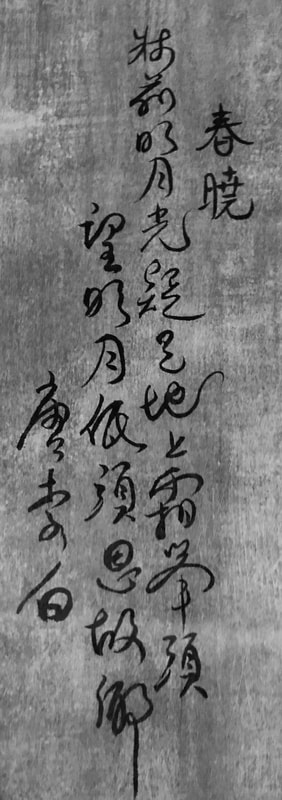 春曉
牀前明月光疑是地上霜舉頭
望明月低頭思故鄉
唐李白